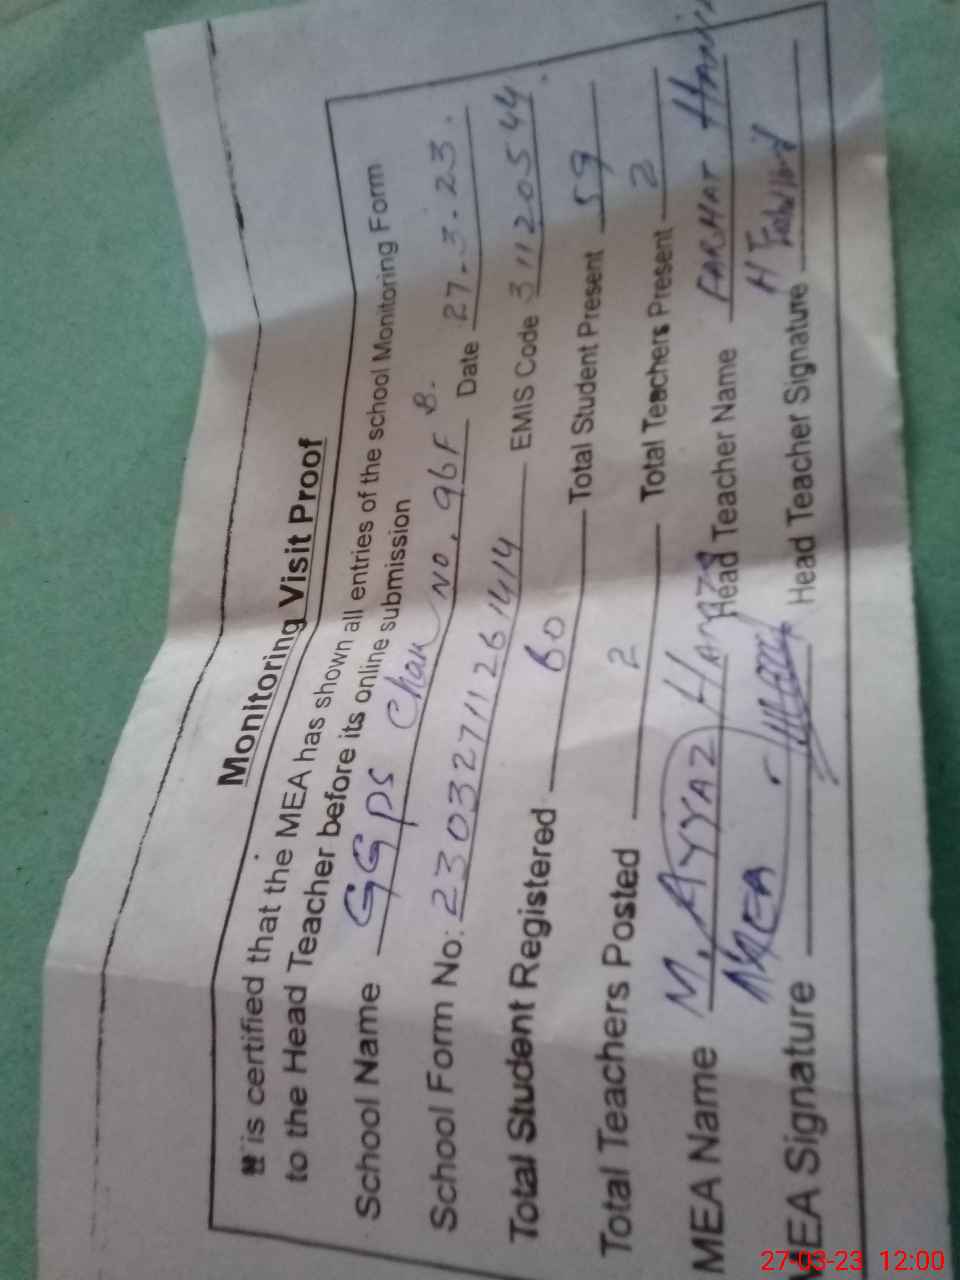 Monitoring Visit Proof
It is certified that the MEA has shown all entries of the school Monitoring Form
to the Head Teacher before its online submission
School Name GGPS Chak NO. 96F B. Date 27-3-23.
School Form No: 23032711261414 EMIS Code 31120544
Total Student Registered 60 Total Student Present 59
Total Teachers Posted 2 Total Teachers Present 2
MEA Name M. AYYAZ Head Teacher Name FARHAT
MEA Signature MEA Head Teacher Signature
27-03-23 12:00